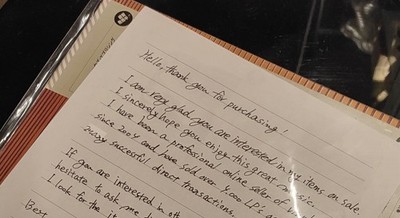 Hello, thank you for purchasing!
I am very glad you are interested in my items on sale
I sincerely hope you enjoy this great music.
I have been a professional online seller of
since 2004 and have sold over 4,000 LP's
many successful direct transactions,
If you are interested in oth
hesitate to ask me
I look for the it
Best